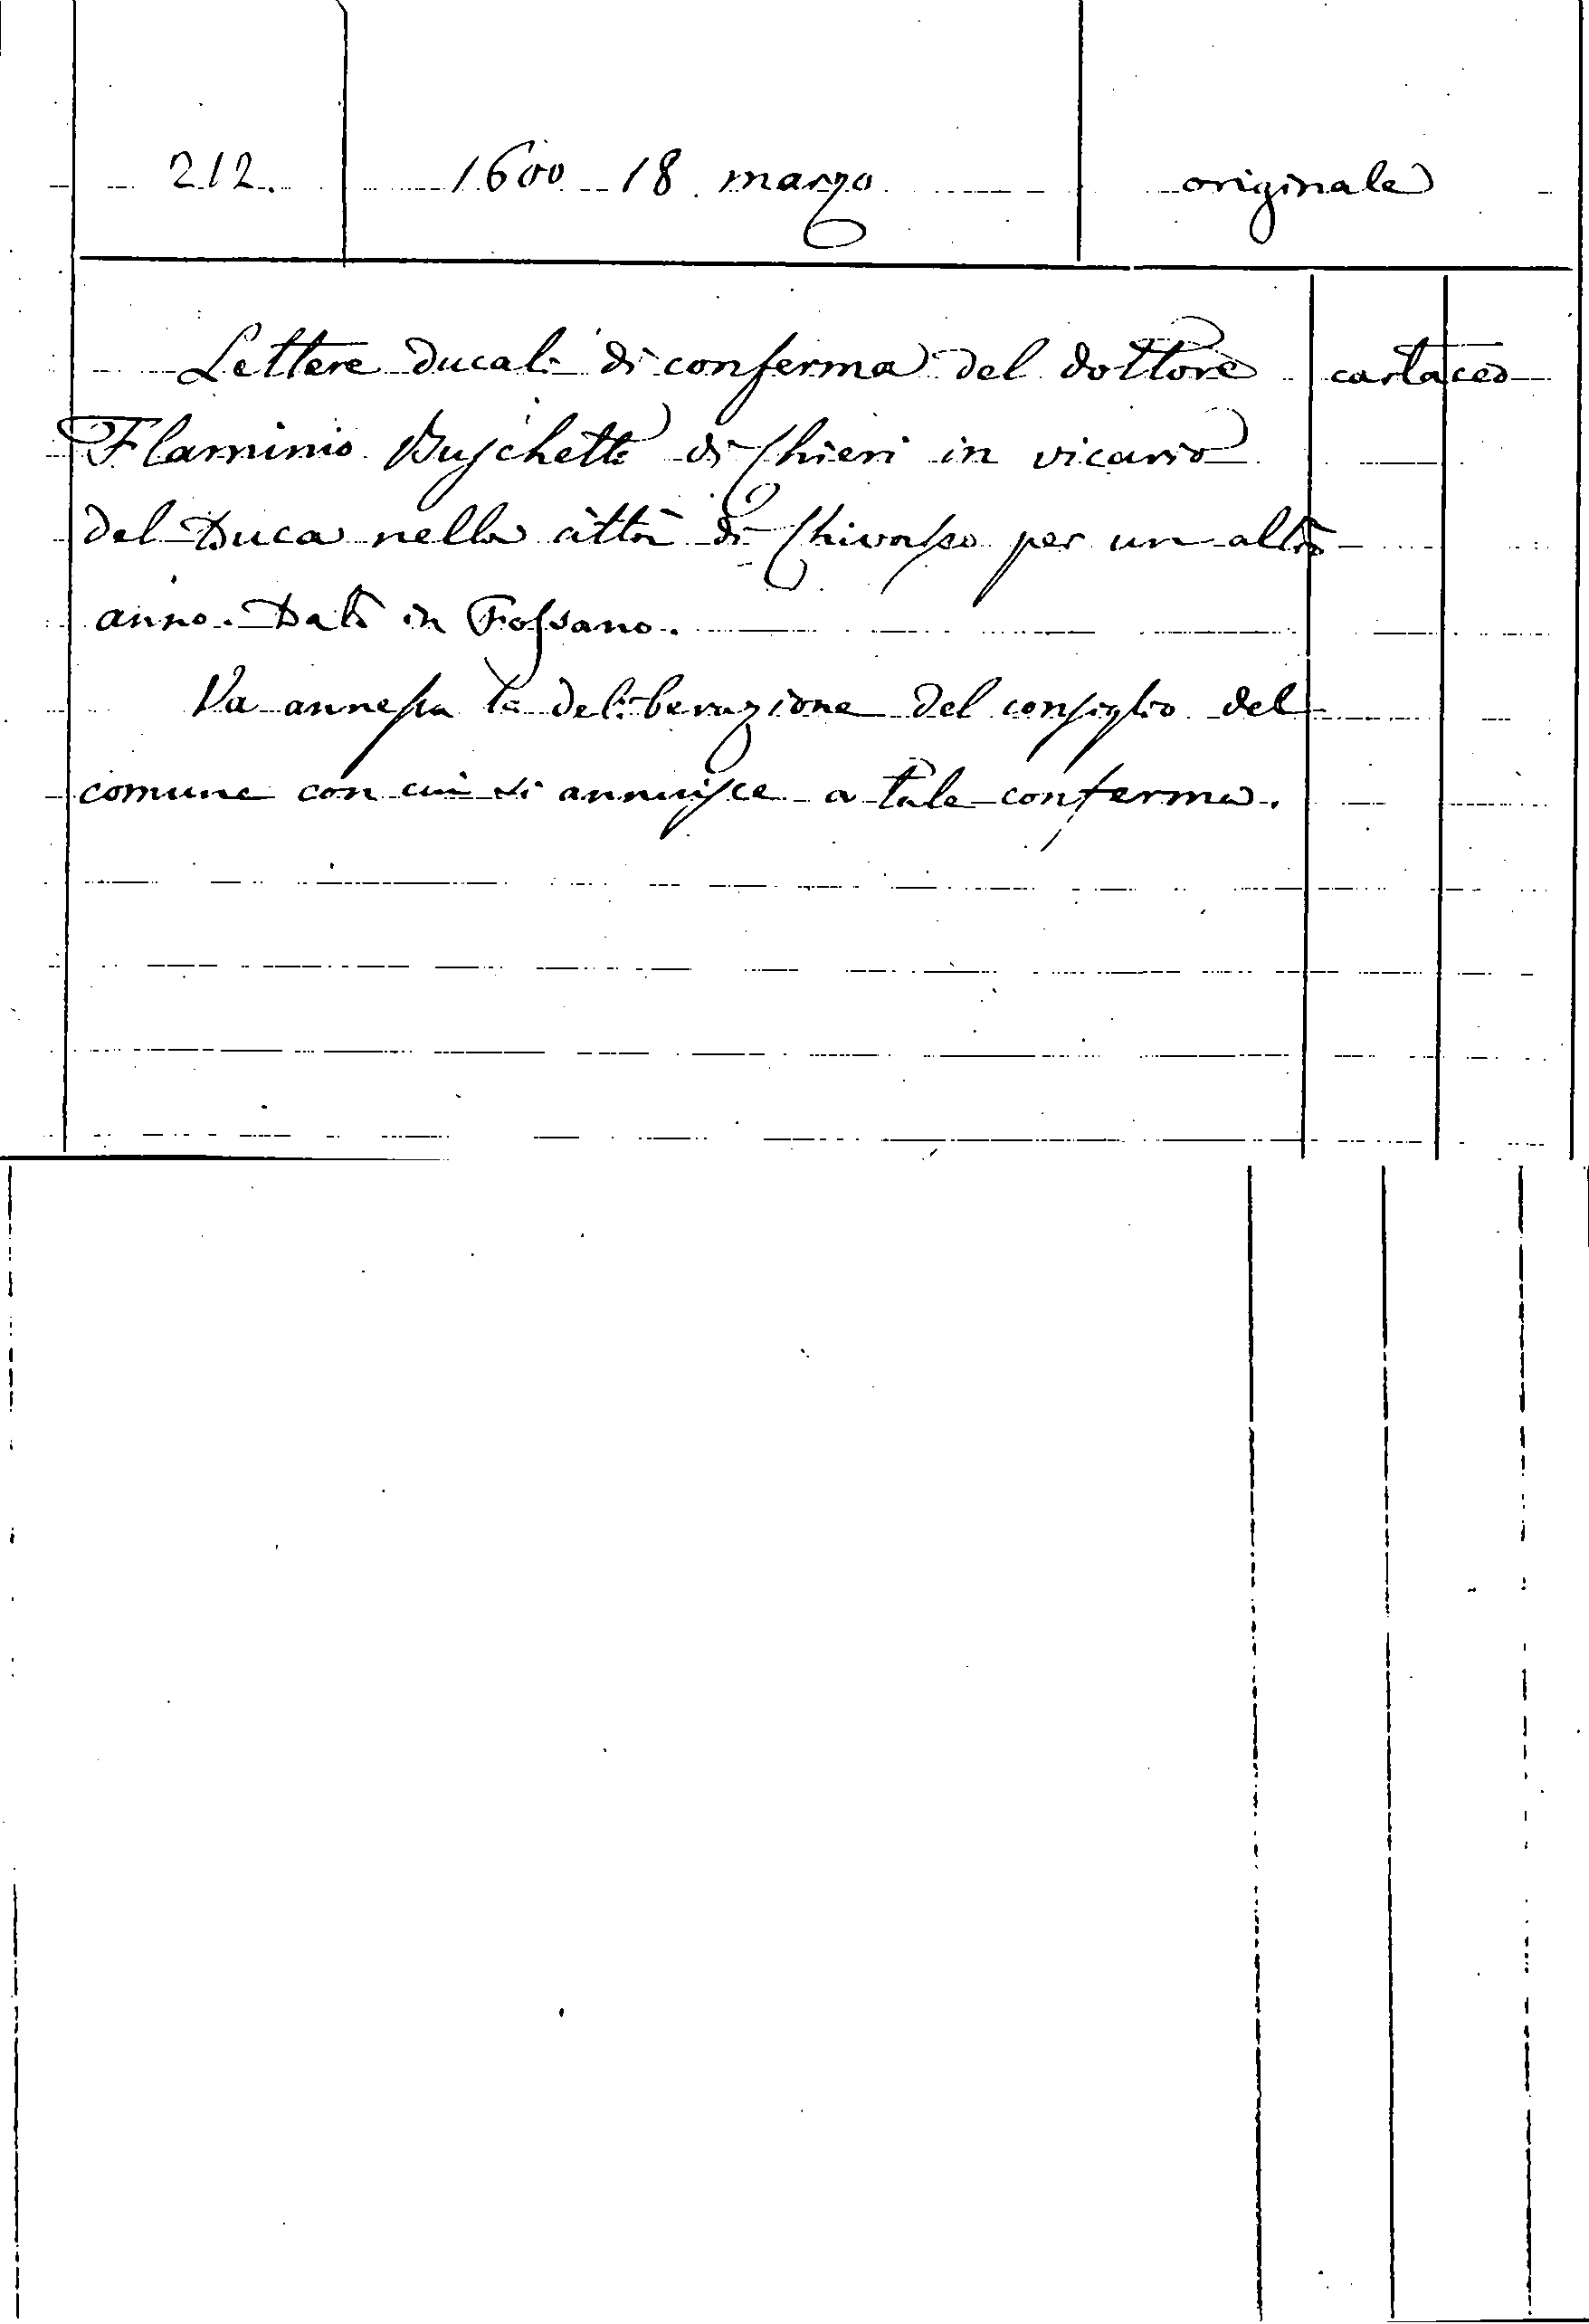 212. 1600 18 marzo originale
Lettere ducali di conferma del dottore cartaceo
Flaminio Buschetti di Chieri in vicario
del Duca nella città di Chivasso per un altro
anno. Dat. in Fossano.
Va annessa la deliberazione del consiglio del
comune con cui si annuisce a tale conferma.